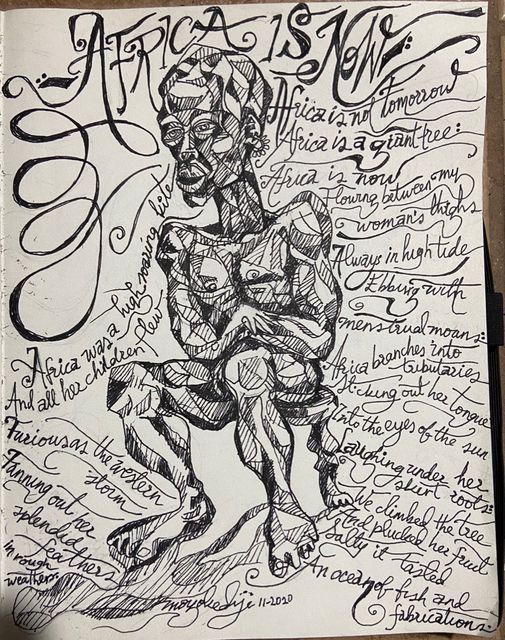 AFRICA IS NOW
Africa is not tomorrow
Africa is a giant tree:
Africa is now
Flowing between my
woman's thighs
Always in high tide
Ebbing with
menstrual moans:
Africa branches into
tributaries
Sticking out her tongue
Into the eyes of the sun
Laughing under her
skirt roots:
We climbed the tree
And plucked her fruit
salty it tasted
An ocean of fish and
fabrications:
Africa was a high soaring kite
And all her children flew
Furious as the western
storm
Fanning out her
splendid
feathers
in rough
weathers
moyo okediji 11-2020